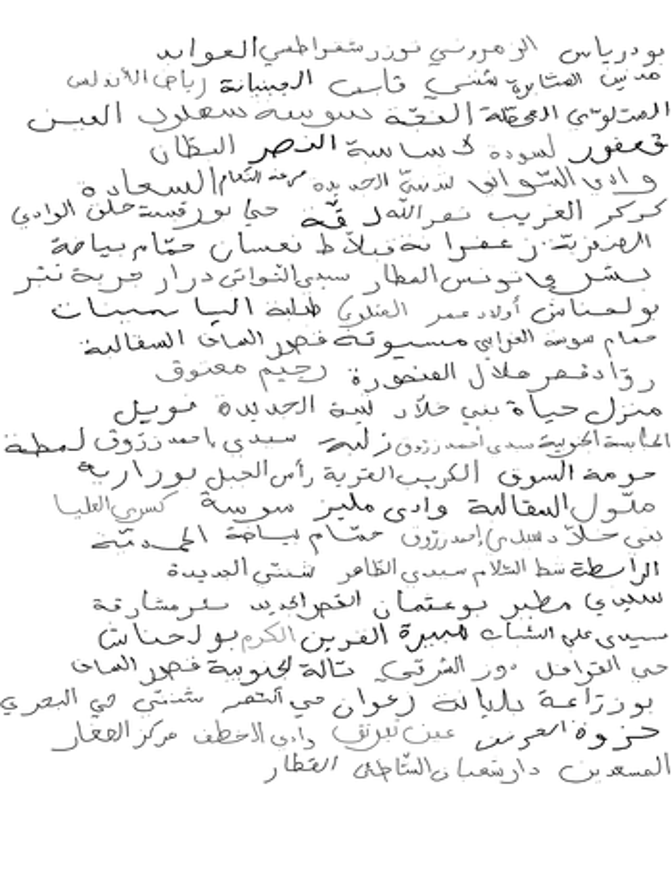 بودرياس الزهروني توزر شقراطس العوابد
مدنين المثايرة شنني قابس الجبنيانة رياض الأندلس
المتلوي المحطة الفجة سوسة سهلول العين
قعفور لسودة كساسة النصر البطان
وادي السواني لبنة الجديدة مرفه النعام السعادة
كركر الغريب نصر الله رقة حي بورقيبة حلق الوادي
زعفرانة قبلاط نعسان حمام بياضة
بشري تونس المطار سيدي التواتي درار جربة نتر
بولحناش أولاد عمر طلبة الياسمينات
حمام سوسة الغرابي مسيوتة قصور الساف السقالبة
روّاد قصر هلال المنصورة رجيم معتوق
منزل حياة بني خلاد لبنة الجديدة نويل
الجنوبية سيدي أحمد زروق زلبة سيدي أحمد زروق لمطة
حومة السوق الكريب القرية رأس الجبل بوزارية
ملّول السقالبة وادي مليز سوسة كسرى العليا
بني خلاد سيدي أحمد زروق حمّام بياضة المحمدية
الرابطة شط السلام سيدي الظاهر شنني الجديدة
سيدي مطير بوعثمان القصر الجديد بئر مشارقة
سيدي علي الشباب هبيرة القرين الكرم بولحناش
حي القوافل دوز الشرقي تالة الجنوبية قصور الساف
بوزراعة بليانة زغوان حي النصر شنني حي البحري
حزوة العرين عين وادي الخطف مركز العقار
المسعدين دار شعبان الشاطئ القطار